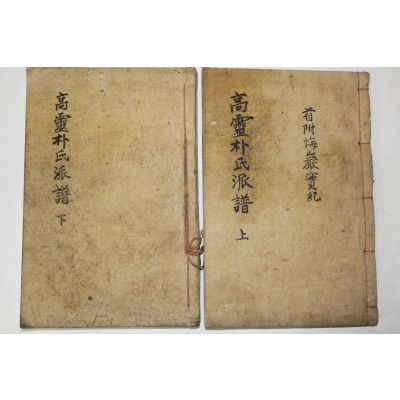 首附梅巖實紀
高靈朴氏派譜 上
高靈朴氏派譜 下